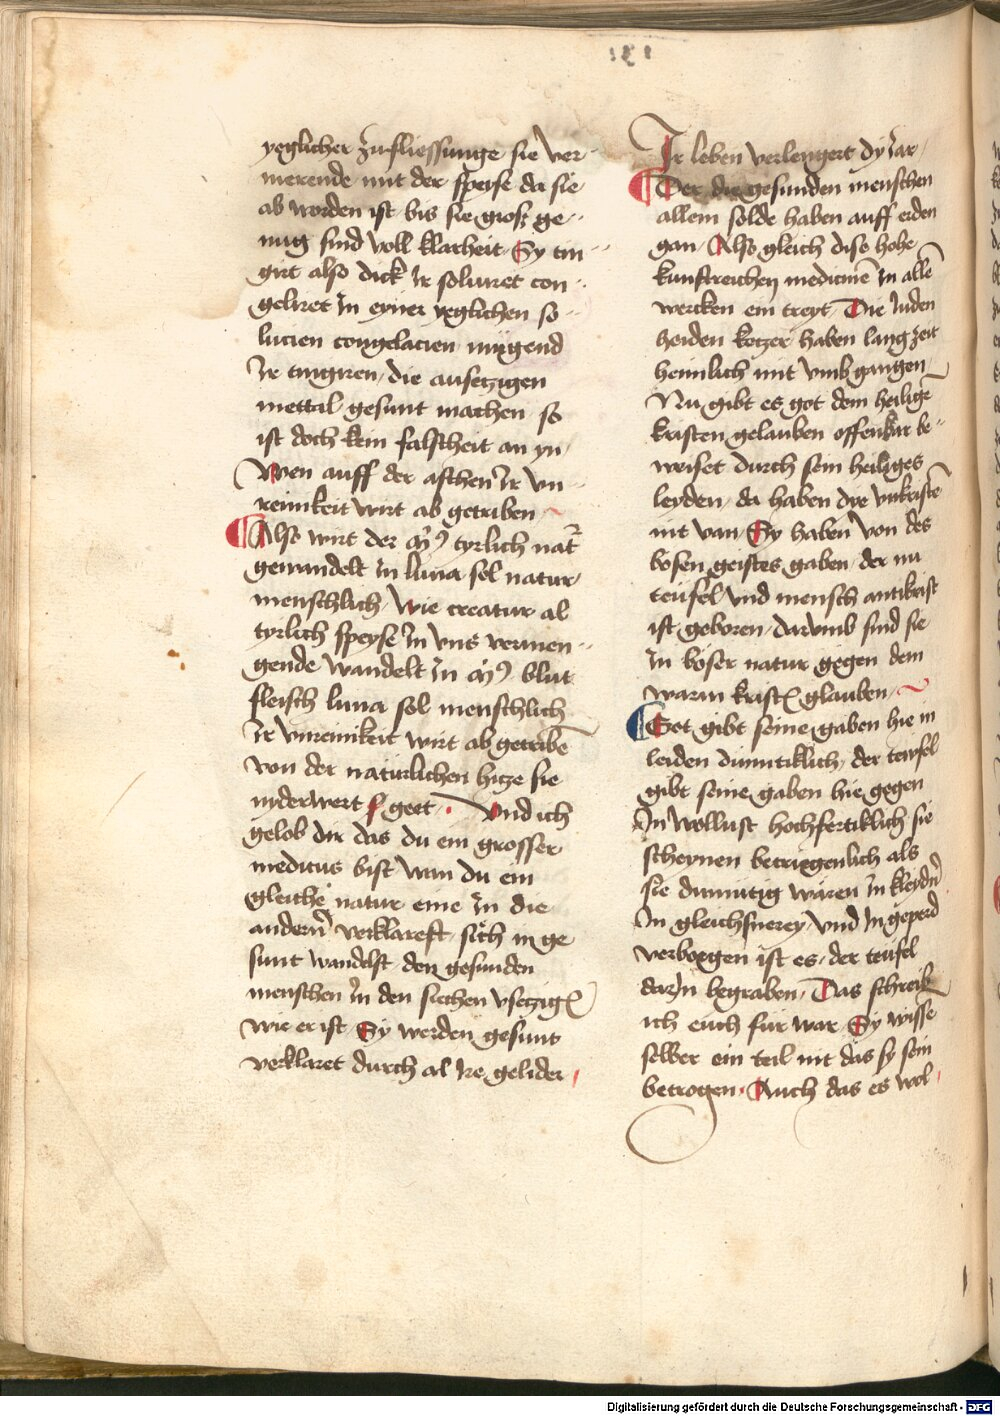 yeglicher zufliessunge sie ver
merende mit der speise da sie
ab worden ist bis sie gross ge
nug sind voll klarheit Sy tin
girt also dick Ir soluiret con
geliret In eyner yeglichen so
lucien congelacien mügend
Ir tingiren die aussetzigen
mettal gesunt machen so
ist doch kein falscheit an yn
Wen auff der aschen Ir vn
reinikeit wirt ab getriben
Also wirt der tyrlich nat
gewandelt In luna sol natur
menschlich wie creatur al
tyrlich speyse In vns vermen
gende wandelt In blut
fleisch luna sol menschlich
Ir vnreinikeit wirt ab getribē
von der naturlichen hitze sie
nyderwert geet Vnd ich
gelob dir das du ein grosser
medicus bist wan du ein
gleiche natur eine In die
andern verklarest sich in ge
sunt wandelst den gesunden
menschen In den siechen vsetzig
wie er ist Sy werden gesunt
verklaret durch al Ire gelider
Ir leben verlengert dy Iar
Der die gesunden menschen
allein solde haben auff erden
gan Also gleich dise hohe
kunstreichen medicinē In allē
wercken ein treyt Die Iuden
heiden ketzer haben lang zeit
heimlich mit vmb gangen
Nu gibt es got dem heiligē
kristen gelauben offenbar be
weiset durch sein heiliges
leyden da haben dye vnkristē
nit van Sy haben von des
bosen geistes gaben der nu
teufel vnd mensch antikrist
ist geboren darvmb sind sie
In böser natur gegen dem
warm krist glauben
Got gibt seine gaben hie in
leiden dimutiklich der teufel
gibt seine gaben hie gegen
In wollust hochfertiklich sie
scheynen betriegenlich als
sie dimutig wären In kleydn
In gleichsnerey vnd In geperd
verborgen ist es der teufel
darIn begraben Das schreib
ich euch für war Sy wisse
selber ein teil nit das sy sein
betrogen Auch das es wol
Digitalisierung gefördert durch die Deutsche Forschungsgemeinschaft - DFG